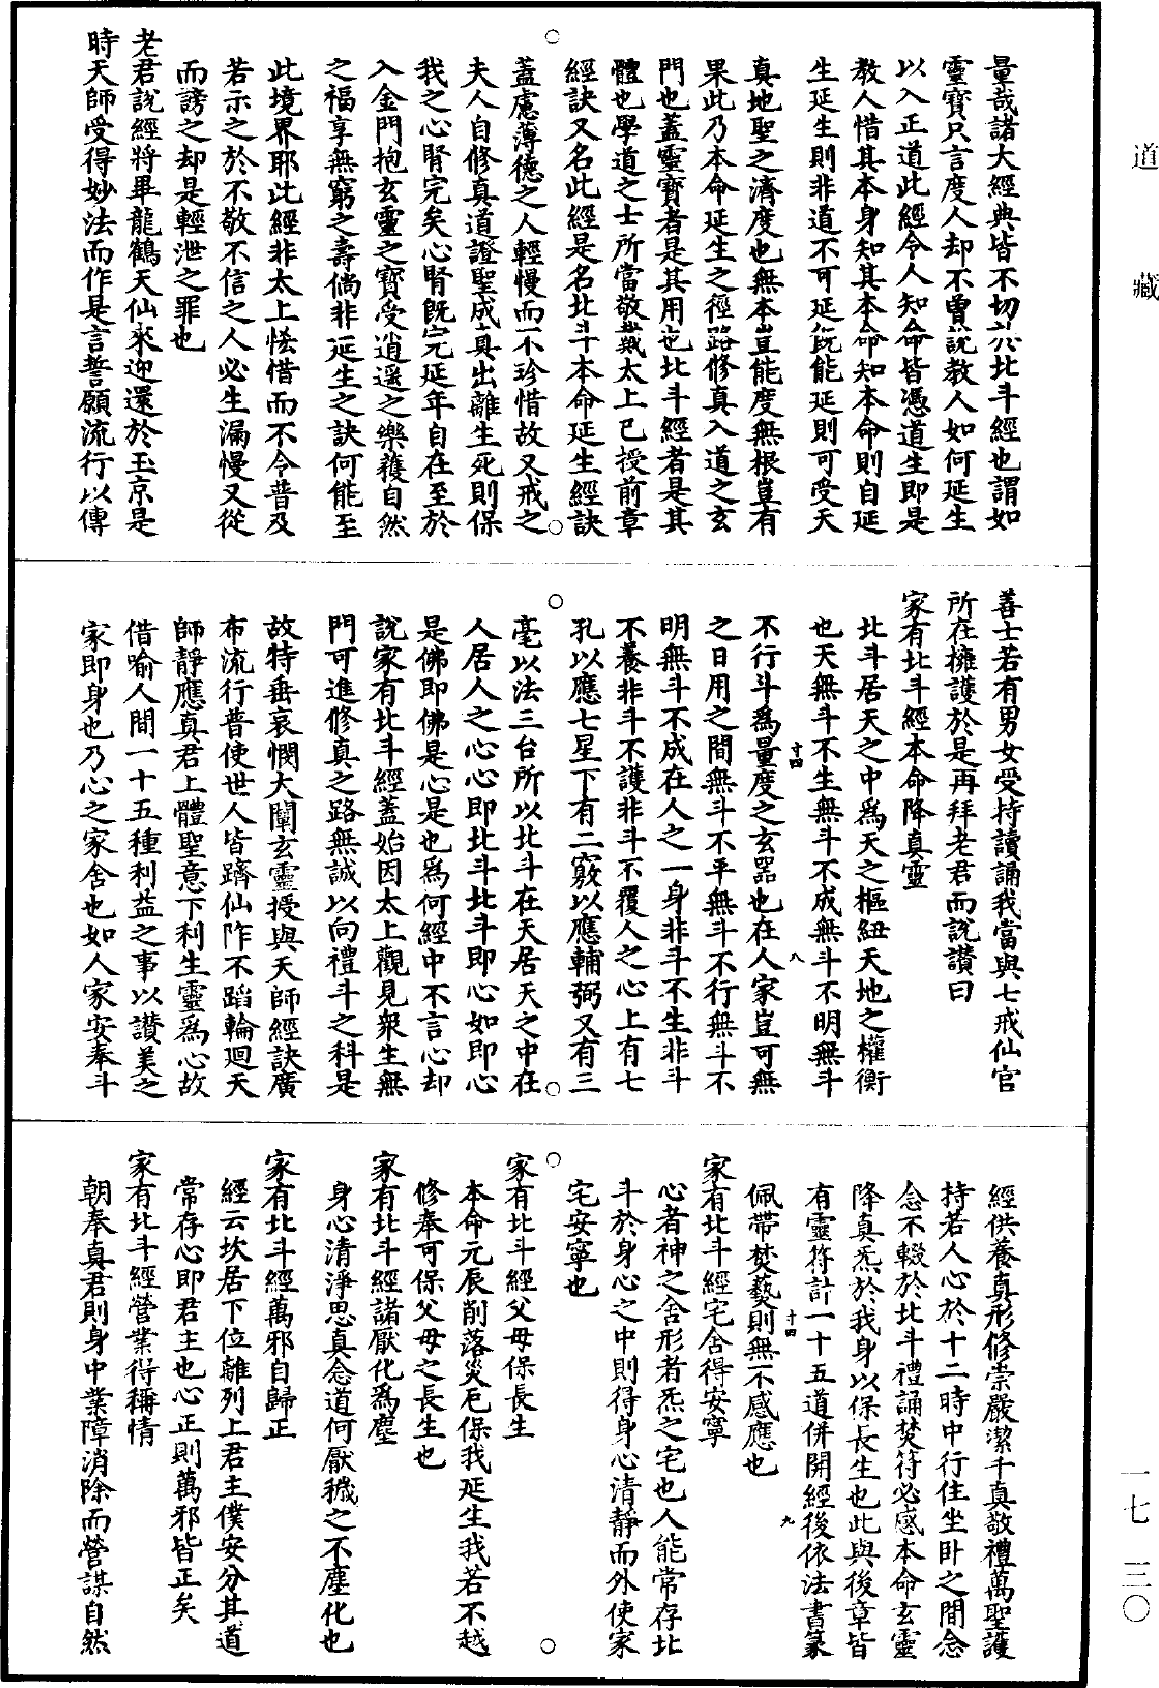 道藏
量哉諸大經典皆不切於北斗經也謂如
靈寶只言度人却不曾說教人如何延生
以入正道此經令人知命皆憑道生即是
教人惜其本身知其本命知本命則自延
生延生則非道不可延旣能延則可受天
真地聖之濟度也無本豈能度無根豈有
果此乃本命延生之徑路修真入道之玄
門也蓋靈寶者是其用也北斗經者是其
體也學道之士所當敬戴太上已授前章
經訣又名此經是名北斗本命延生經訣
蓋慮薄德之人輕慢而不珍惜故又戒之
夫人自修真道證聖成真出離生死則保
我之心腎完矣心腎旣完延年自在至於
入金門抱玄靈之寶受逍遥之樂獲自然
之福享無窮之壽倘非延生之訣何能至
此境界耶此經非太上恡惜而不令普及
若示之於不敬不信之人必生漏慢又從
而謗之却是輕泄之罪也
老君說經將畢龍鶴天仙來迎還於玉京是
時天師受得妙法而作是言誓願流行以傳
善士若有男女受持讀誦我當與七戒仙官
所在擁護於是再拜老君而說讚曰
家有北斗經本命降真靈
北斗居天之中爲天之樞紐天地之權衡
也天無斗不生無斗不成無斗不明無斗
寸四 八
不行斗爲量度之玄器也在人家豈可無
之日用之間無斗不平無斗不行無斗不
明無斗不成在人之一身非斗不生非斗
不養非斗不護非斗不覆人之心上有七
孔以應七星下有二竅以應輔弼又有三
毫以法三台所以北斗在天居天之中在
人居人之心心即北斗北斗即心如即心
是佛即佛是心是也爲何經中不言心却
說家有北斗經蓋始因太上觀見衆生無
門可進修真之路無誠以向禮斗之科是
故特垂哀憫大闡玄靈授與天師經訣廣
布流行普使世人皆躋仙阼不蹈輪迴天
師靜應真君上體聖意下利生靈爲心故
借喻人間一十五種利益之事以讚美之
家即身也乃心之家舍也如人家安奉斗
經供養真形修崇嚴潔千真敬禮萬聖護
持若人心於十二時中行住坐卧之間念
念不輟於北斗禮誦焚符必感本命玄靈
降真炁於我身以保長生也此與後章皆
有靈符計一十五道併開經後依法書篆
寸四 九
佩帶焚爇則無不感應也
家有北斗經宅舍得安寧
心者神之舍形者炁之宅也人能常存北
斗於身心之中則得身心清靜而外使家
宅安寧也
家有北斗經父母保長生
本命元辰削落災厄保我延生我若不越
修奉可保父母之長生也
家有北斗經諸厭化爲塵
身心清淨思真念道何厭穢之不塵化也
家有北斗經萬邪自歸正
經云坎居下位離列上君主僕安分其道
常存心即君主也心正則萬邪皆正矣
家有北斗經營業得稱情
朝奉真君則身中業障消除而營謀自然
一七 三〇